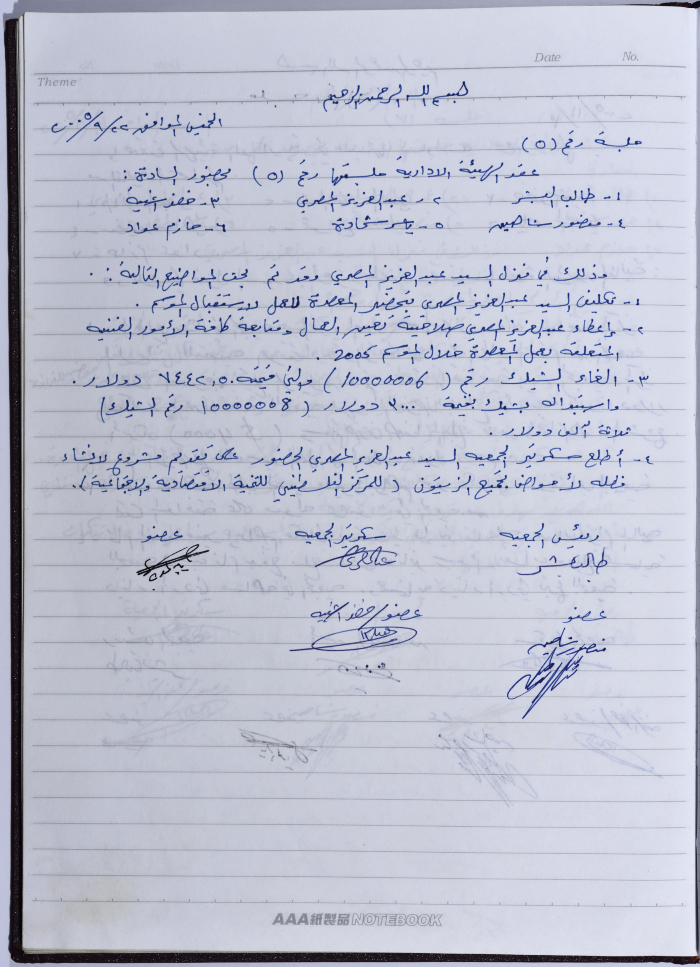 Date No.
Theme
بسم الله الرحمن الرحيم
الخميس الموافق ٢٢/٩/٢٠٠٥
جلسة رقم (٥)
عقد الهيئة الادارية جلستها رقم (٥) بحضور السادة :
١- طالب البشر ٢- عبدالعزيز المصري ٣- خضر اشنية
٤- منصور شاهين ٥- ياسر شحادة ٦- حازم عواد
وذلك في منزل السيد عبدالعزيز المصري وقد تم بحث المواضيع التالية :
١- تكليف السيد عبدالعزيز المصري بتحضير المعصرة للعمل لاستقبال الموسم .
٢- إعطاء عبدالعزيز المصري صلاحية تعيين العمال ومتابعة كافة الأمور الفنية
المتعلقة بعمل المعصرة خلال الموسم 2005 .
٣- الغاء الشيك رقم (10000006) والتي قيمته ٧٤٤٢,٥٠ دولار .
واستبداله بشيك بقيمة ٣٠٠٠ دولار (10000008 رقم الشيك)
ثلاثة آلاف دولار .
٤- أطلع سكرتير الجمعيه السيد عبدالعزيز المصري الحضور على تقديم مشروع لانشاء
( للمركز الفلسطيني للتنمية الاقتصادية والاجتماعية ) .
رئيس الجمعيه سكرتير الجمعيه عضو
طالب بشر
عضو عضو/خضر اشنيه
منصور شاهين
AAA紙製品 NOTEBOOK